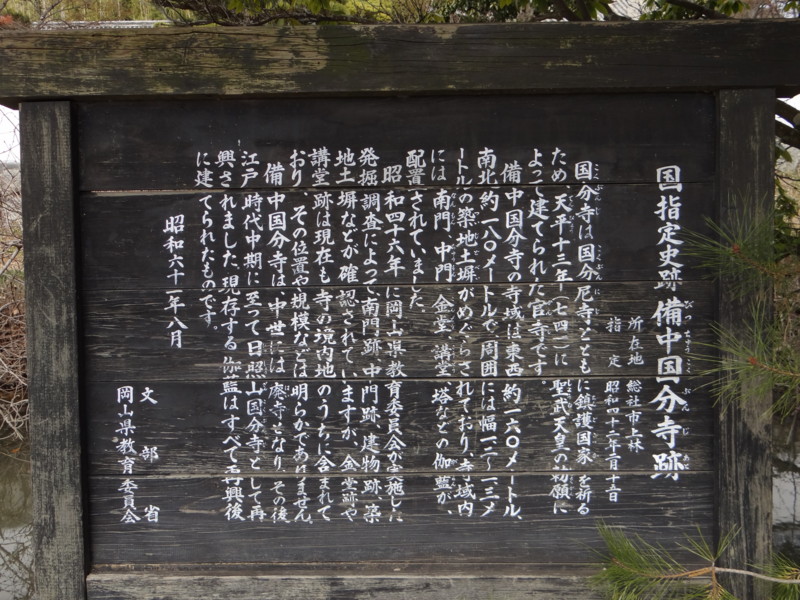 国指定史跡 備中国分寺跡
びっちゅうこくぶんじあと
所在地 総社市上林
指定 昭和四十三年二月十五日
国分寺は国分尼寺とともに鎮護国家を祈る
ため、天平十三年(七四一)に聖武天皇の勅願に
よって建てられた官寺です。
備中国分寺の寺域は東西約一六〇メートル、
南北約一八〇メートルで、周囲には幅一.二〜一.三メ
ートルの築地土塀がめぐらされており、寺域内
には南門、中門、金堂、講堂、塔などの伽藍が、
配置されていました。
昭和四十六年に岡山県教育委員会が実施した
発掘調査によって南門跡、中門跡、建物跡、築
地土塀などが確認されていますが、金堂跡や
講堂跡は現在も寺の境内地のうちに含まれて
おり、その位置や規模などは明らかでありません。
備中国分寺は、中世には廃寺となり、その後
江戸時代中期に至って日照山国分寺として再
興されました。現存する伽藍はすべて再興後
に建てられたものです。
昭和六十一年八月
文部省
岡山県教育委員会